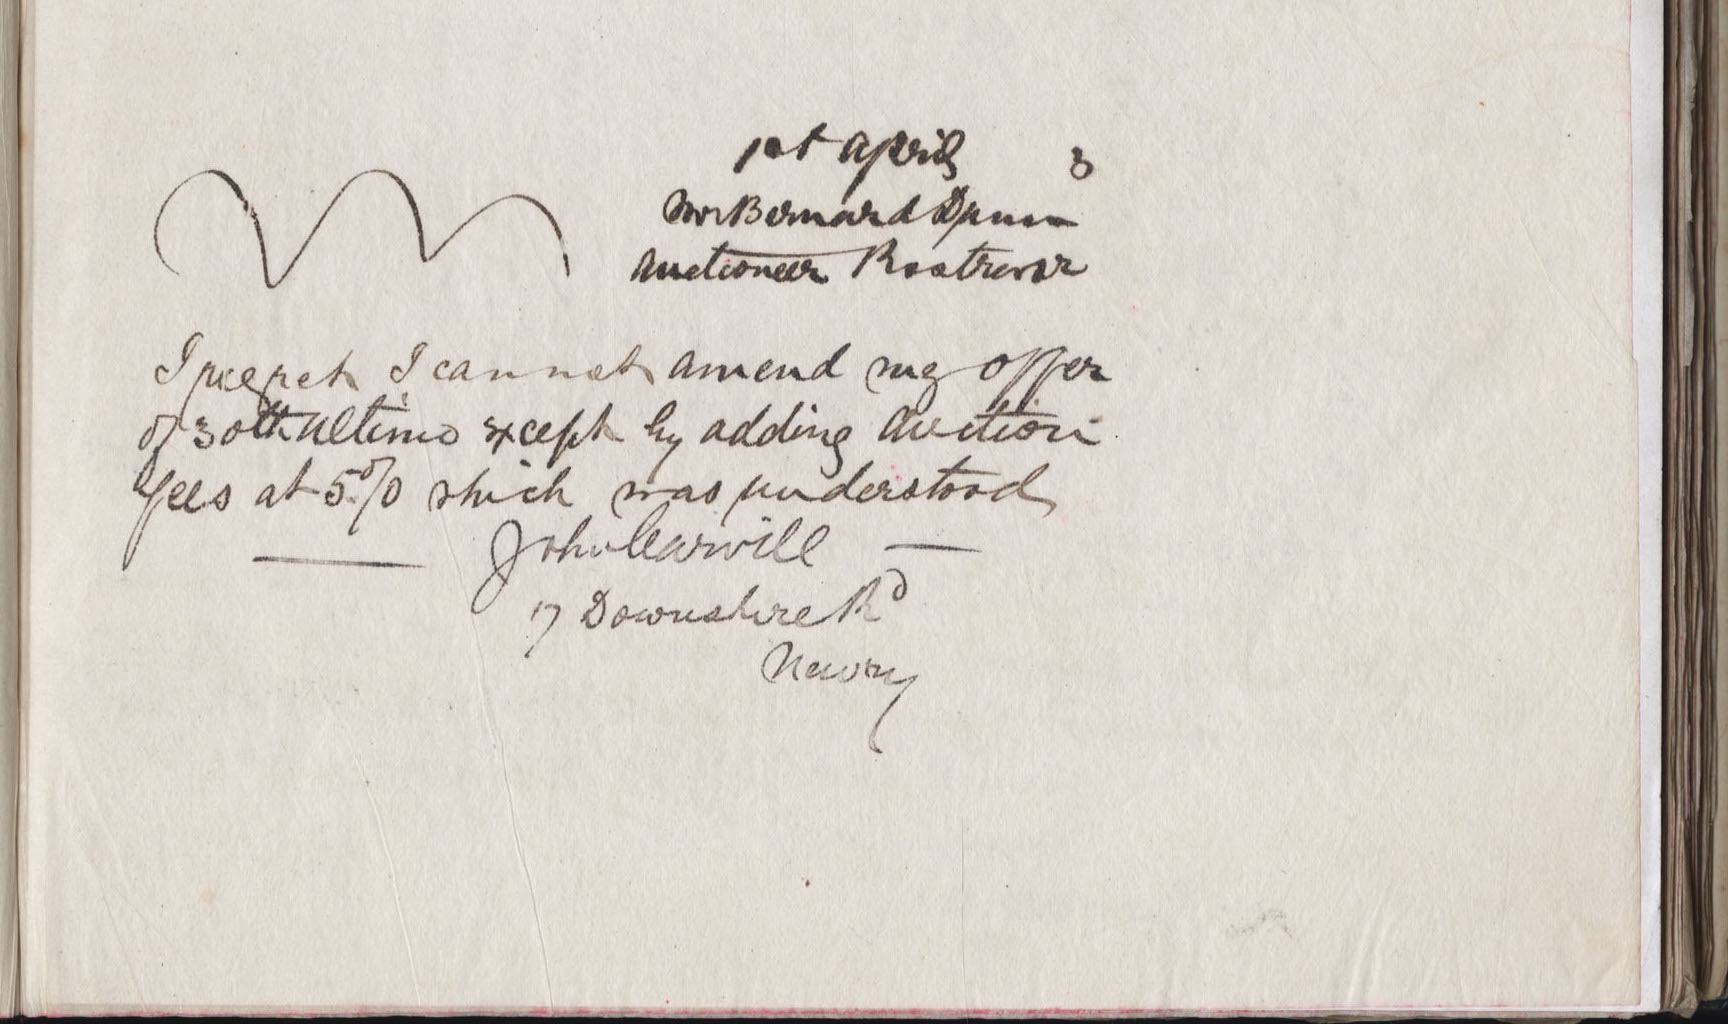 1st April 3
Mr Bernard Dunn
Auctioneer Rostrevor
I regret I cannot amend my offer
of 30th Ultimo except by adding Auction
fees at 5% which was understood
John Carvill
17 Downshire Rd
Newry